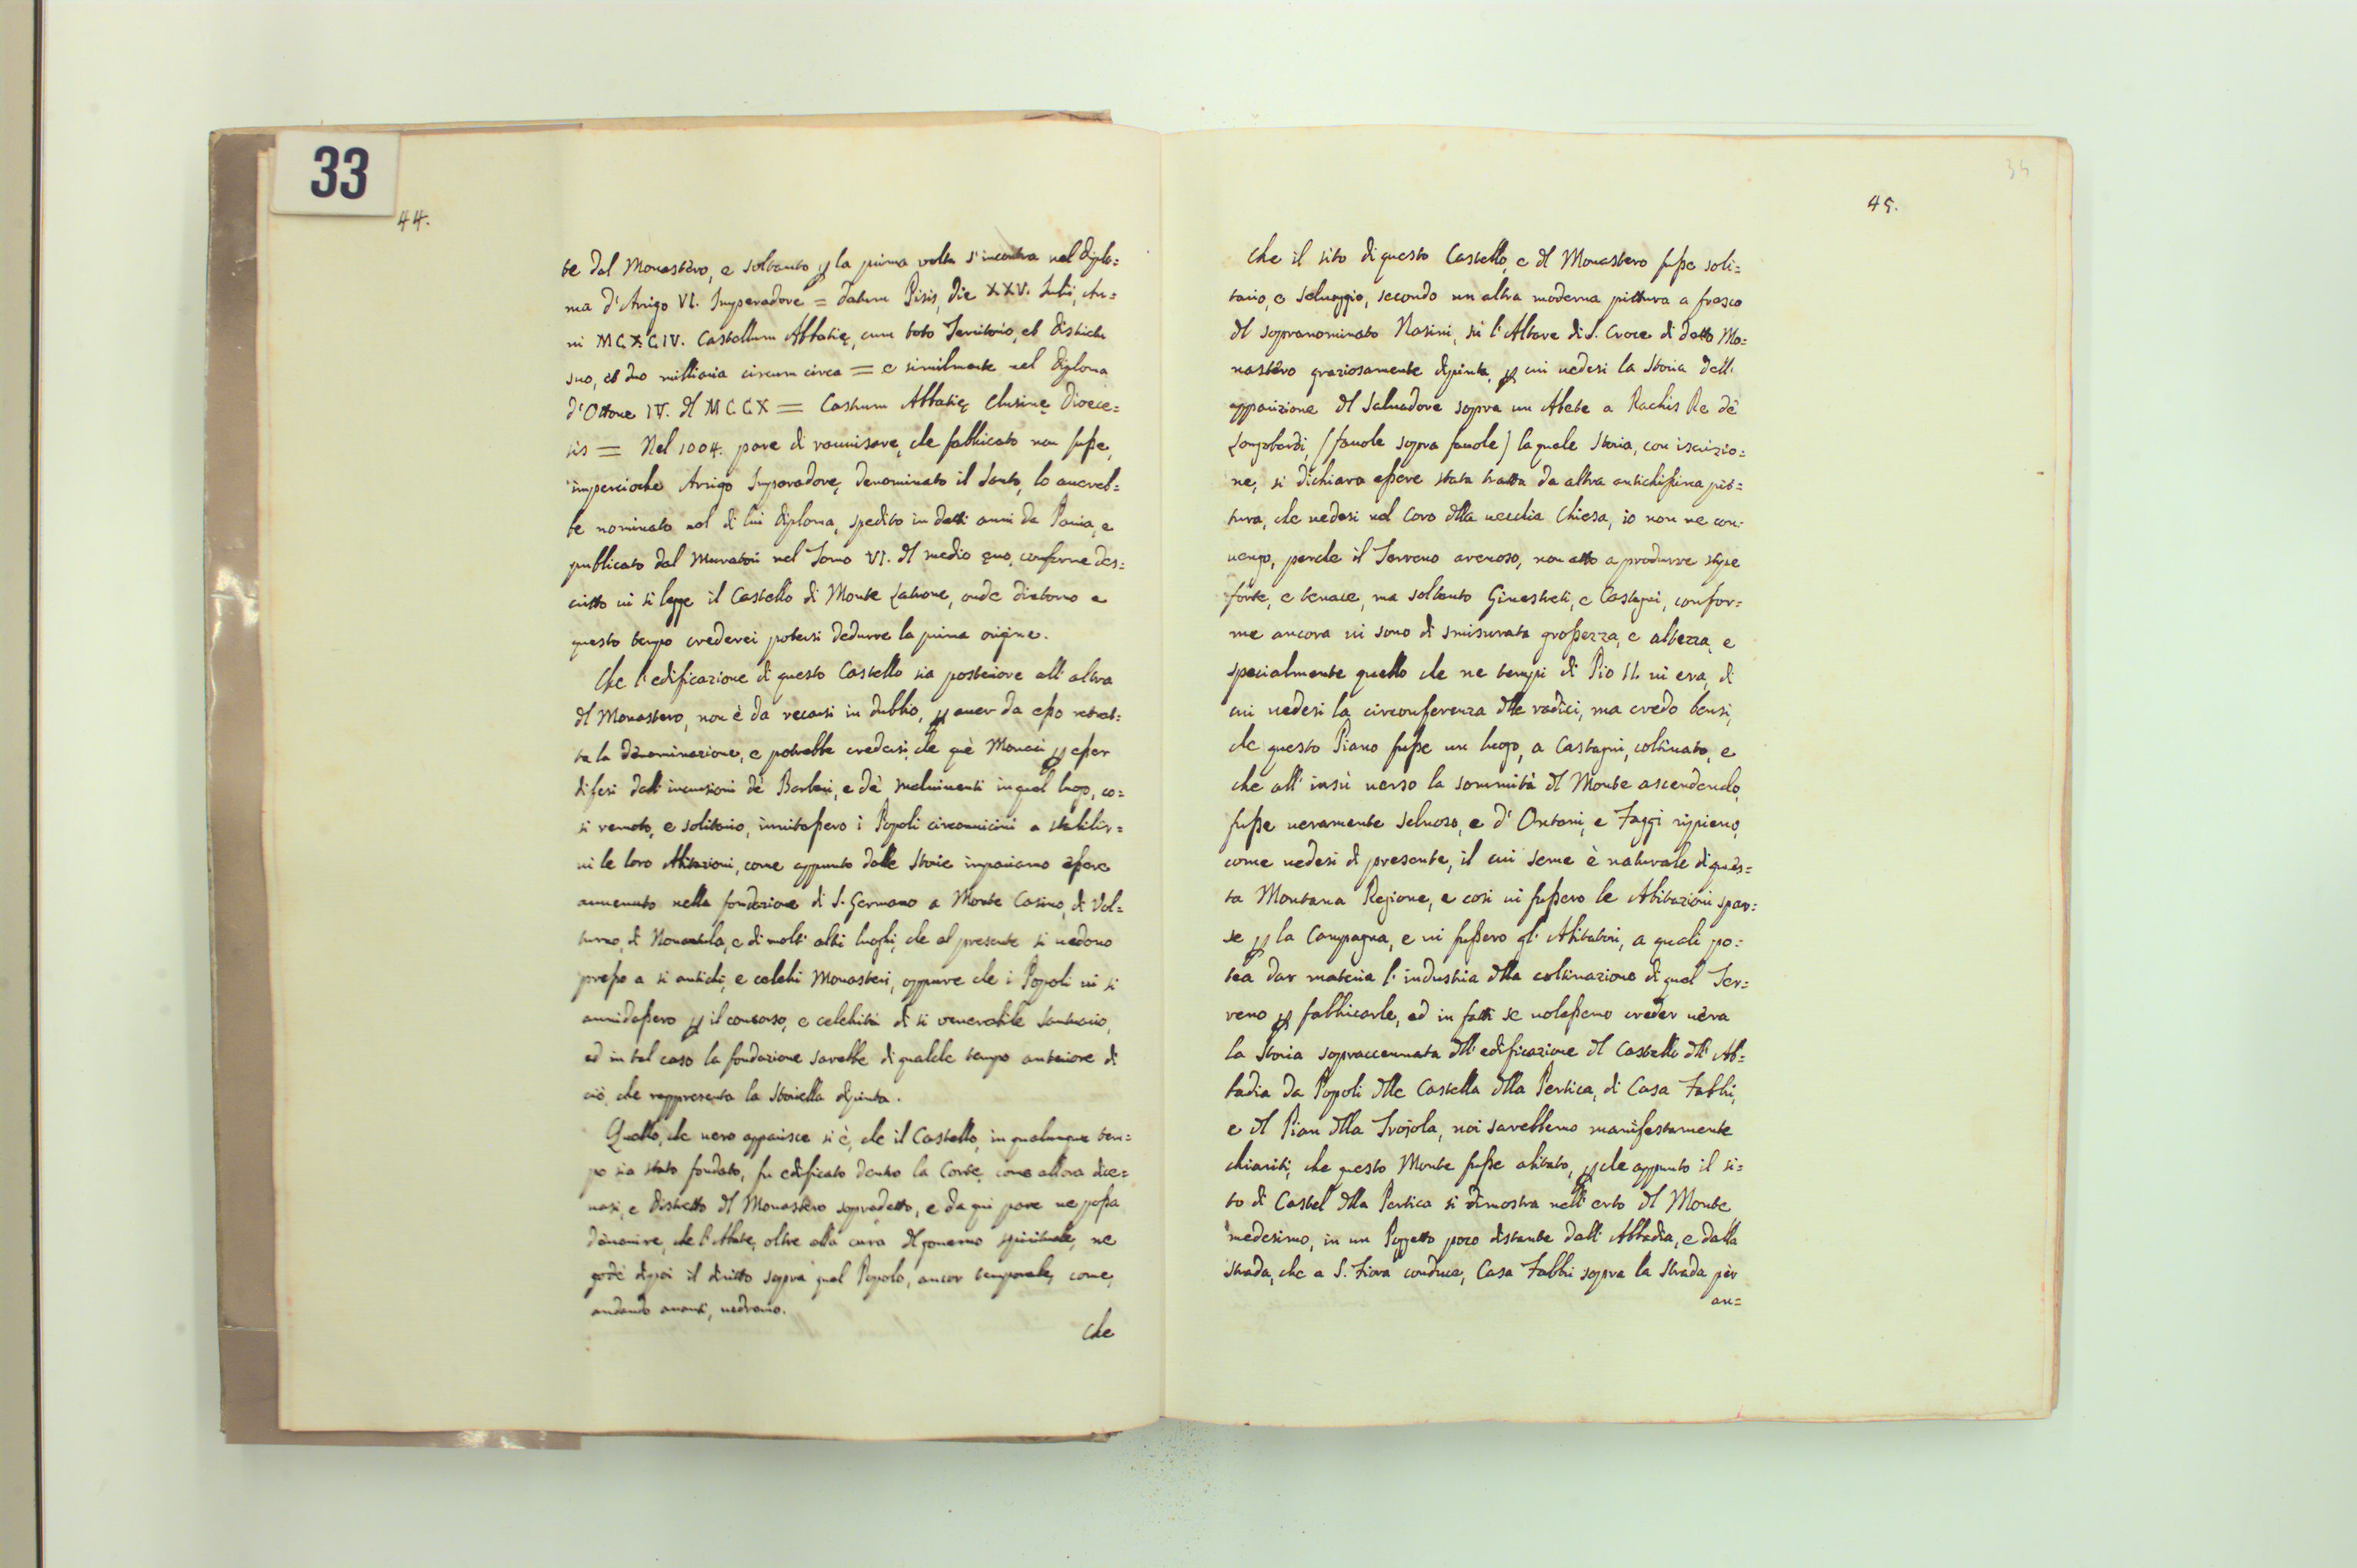 33
44.
te dal Monastèro, e soltanto p la prima volta s'incontra nel diplo=
ma d'Arrigo VI. Imperadore = datum Pisis, die XXV. Julii, An=
ni MCXCIV. Castellum Abbatię, cum toto Territorio, et districtu
suo, et duo milliaria circum circa = e similmente nel diploma
d'Ottone IV. dl MCCX = Castrum Abbatię Clusinę Dioece=
sis = Nel 1004. pare di ravvisare, che fabbricato non fuße,
imperciocche Arrigo Imperadore, denominato il Santo, lo avereb=
be nominato nel di lui diploma, spedito in detti anni da Pavia, e
publicato dal Muratori nel Tomo VI. dl medio ęvo, conforme des=
critto vi si legge il Castello di Monte Latrone, onde d'intorno a
questo tempo crederei potersi dedurre la prima origine.
Che l'edificazione di questo Castello sia posteriore all'altra
dl Monastero, non è da recarsi in dubbio, p aver da eßo retrat=
ta la denominazione, e potrebbe credersi, che què Monaci p eßer
difesi dall'incursioni dè Barbari, e dè malviventi in quel luogo, co=
si remoto, e solitario, invitaßero i Popoli circonvicini a stabilir=
vi le loro Abitazioni, come appunto dalle Storie impariamo eßere
avvenuto nella fondazione di S. Germano a Monte Casino, di Vol=
turno, di Nonantola, e di molti altri luoghi, che al presente si vedono
preßo a si antichi, e celebri Monasteri, oppure che i Popoli vi si
annidaßero p il concorso, e celebrità di si venerabile Santuario,
ed in tal caso la fondazione sarebbe di qualche tempo anteriore di
ciò, che rappresenta la Storiella dipinta.
Quello, che vero apparisce si è, che il Castello, in qualunque tem=
po sia stato fondato, fu edificato dentro la Corte, come allora dice=
vasi, e distretto dl Monastèro sopradetto, e da qui pare ne poßa
dènarivre, che l'Abate, oltre alla cura dl governo spirituale, ne
godè dipoi il diritto sopra quel Popolo, ancor temporale, come,
andando avanti, vedremo.
Che
34
45.
Che il sito di questo Castello, e dl Monastero fuße soli=
tario, e selvaggio, secondo un altra moderna pittura a fresco
dl sopranominato Nasini, sù l'Altare di S. Croce di detto Mo=
nastèro graziosamente dipinta, p cui vedesi la Storia dell'
apparizione dl Salvadore sopra un Abete a Rachis Re dè
Longobardi, (favole sopra favole) la quale Storia, con iscrizio=
ne, si dichiara eßere stata tratta da altra antichißima pit=
tura, che vedesi nel Coro dlla vecchia Chiesa, io non ne con=
vengo, perche il Terreno arenoso, non atto a produrre stipe
forte, e tenace, ma soltanto Ginestreti, e Castagni, confor=
me ancora vi sono di smisurata großezza, e altezza, e
specialmente quello che ne tempi di Pio II. vi era, di
cui vedesi la circonferenza dlle radici, ma credo bensi,
che questo Piano fuße un luogo, a Castagni, coltivato, e
che all'insù verso la sommità dl Monte ascendendo,
fuße veramente selvoso, e d'Ontani, e Faggi ripieno,
come vedesi di presente, il cui seme è naturale di ques=
ta Montana Regione, e cosi vi fußero le Abitazioni spar=
se p la Campagna, e vi fußero gl'Abitatori, a quali po=
tea dar materia l'industria dlla coltivazione di quel Ter=
reno p fabbricarle, ed in fatti se voleßemo creder vèra
la Storia sopraccennata dll'edificazione dl Castello dll'Ab=
badia da Popoli dlle Castella dlla Pertica, di Casa Fabbri,
e dl Pian dlla Trojola, noi sarebbemo manifestamente
chiariti, che questo Monte fuße abitato, p che appunto il si=
to di Castel dlla Pertica si dimostra nell'erto dl Monte
medesimo, in un Poggetto poco distante dall'Abbadia, e dalla
strada, che a S. Fiora conduce, Casa Fabbri sopra la strada pèr
an=